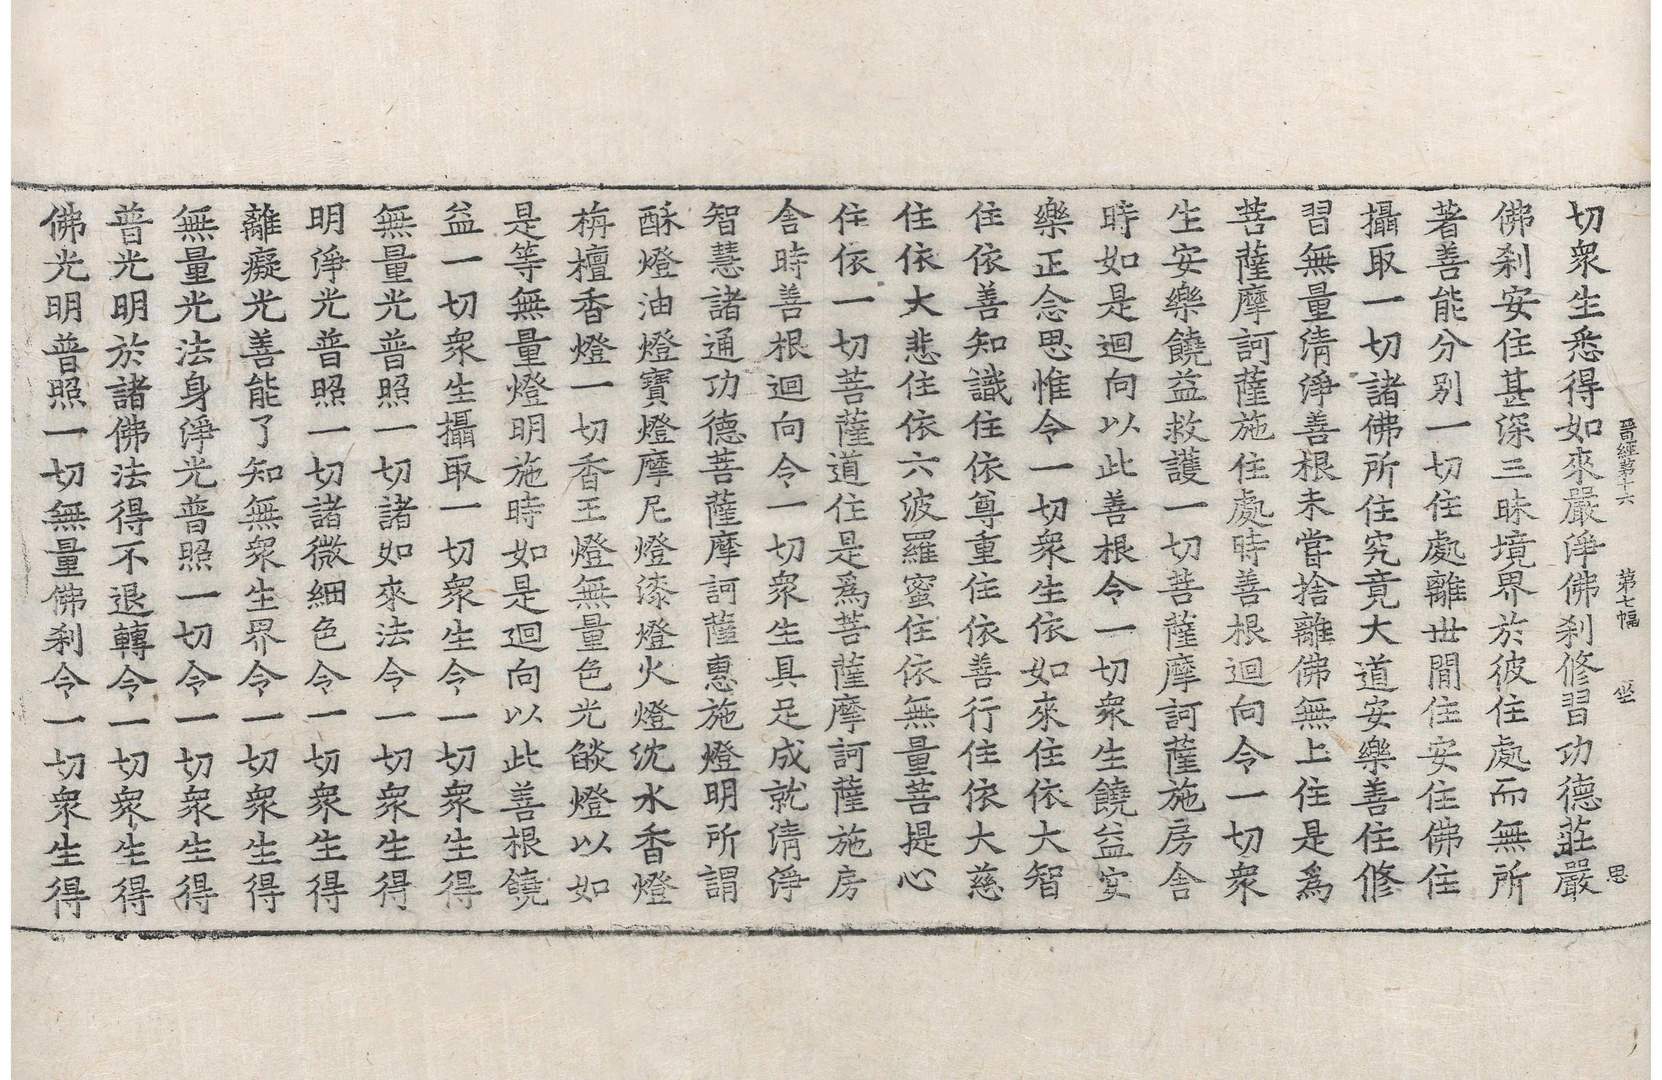 晋經第十六 第七幅 坐 思
切衆生悉得如來嚴淨佛刹修習功德莊嚴
佛刹安住甚深三昧境界於彼住處而無所
著善能分别一切住處離世間住安住佛住
攝取一切諸佛所住究竟大道安樂善住修
習無量清淨善根未嘗捨離佛無上住是爲
菩薩摩訶薩施住處時善根迴向令一切衆
生安樂饒益救護一切菩薩摩訶薩施房舍
時如是迴向以此善根令一切衆生饒益安
樂正念思惟令一切衆生依如來住依大智
住依善知識住依尊重住依善行住依大慈
住依大悲住依六波羅蜜住依無量菩提心
住依一切菩薩道住是爲菩薩摩訶薩施房
舍時善根迴向令一切衆生具足成就清淨
智慧諸通功德菩薩摩訶薩惠施燈明所謂
酥燈油燈寶燈摩尼燈漆燈火燈沈水香燈
栴檀香燈一切香王燈無量色光燄燈以如
是等無量燈明施時如是迴向以此善根饒
益一切衆生攝取一切衆生令一切衆生得
無量光普照一切諸如來法令一切衆生得
明淨光普照一切諸微細色令一切衆生得
離癡光善能了知無衆生界令一切衆生得
無量光法身淨光普照一切令一切衆生得
普光明於諸佛法得不退轉令一切衆生得
佛光明普照一切無量佛刹令一切衆生得